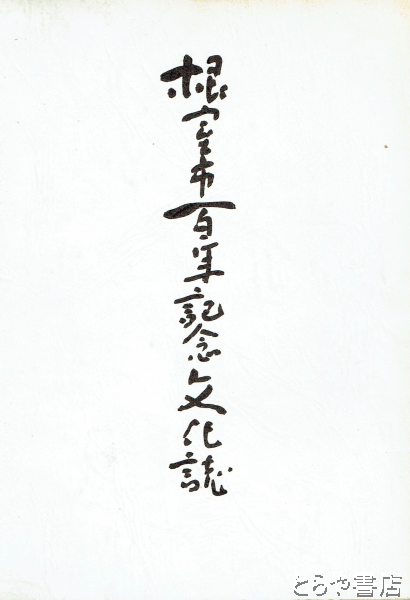 根室市百年記念文化誌
とらや書店